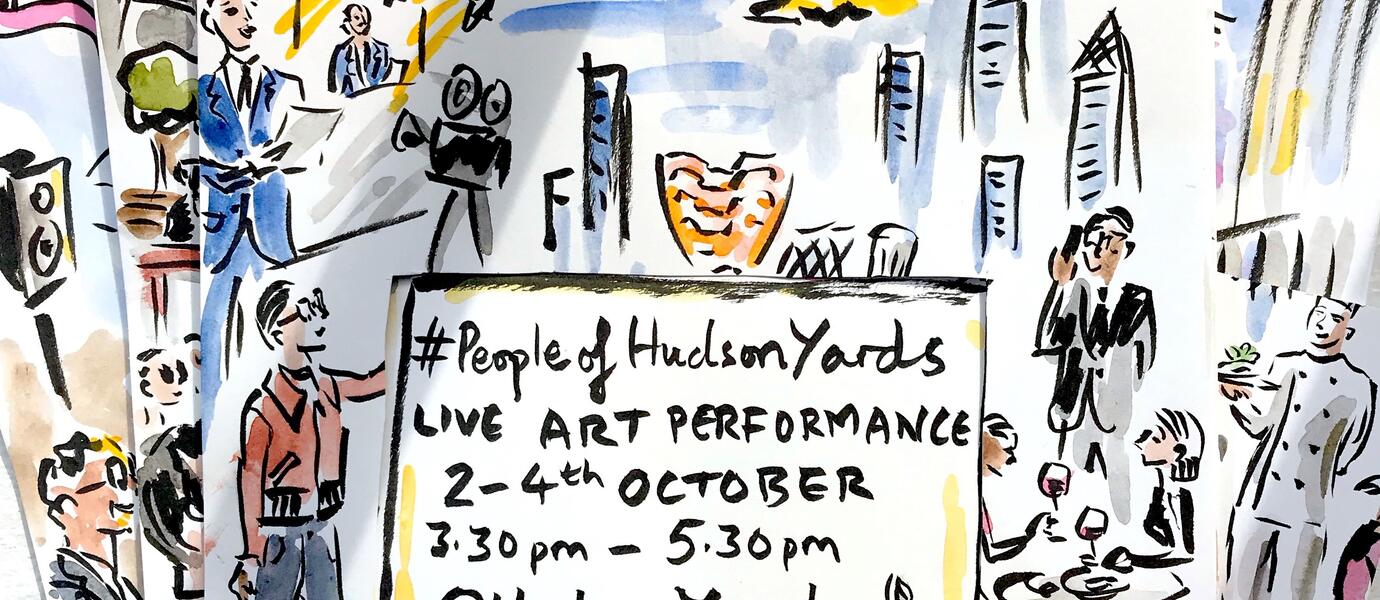 #People of Hudson Yards
LIVE ART PERFORMANCE
2-4th OCTOBER
3.30pm - 5.30pm